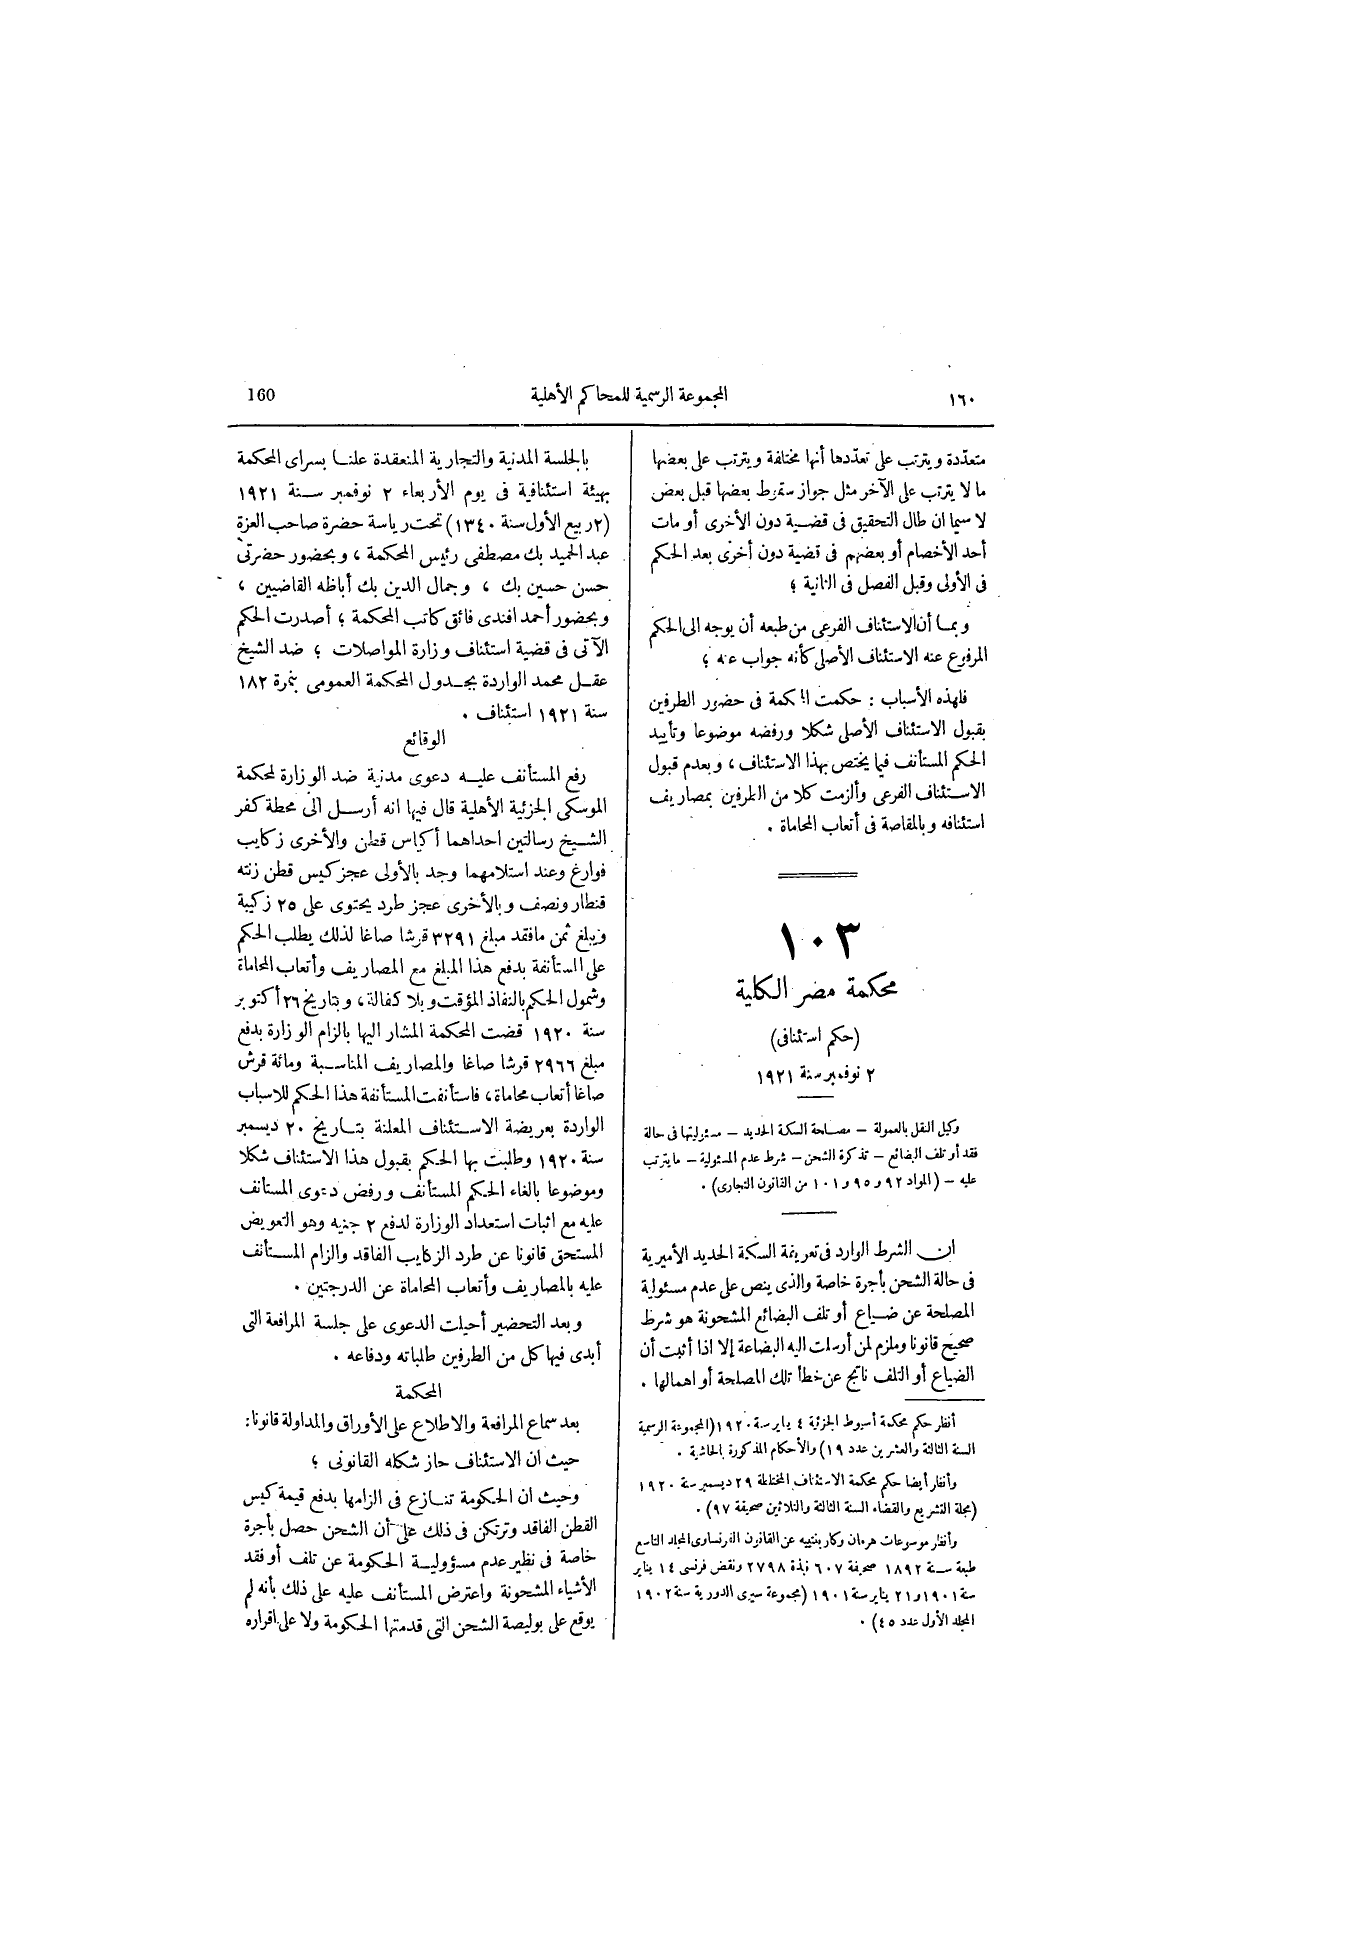 ١٦٠
المجموعة الرسمية للمحاكم الأهلية
160
متعدّدة ويترتب على تعدّدها أنها مختلفة ويترتب على بعضها
ما لا يترتب على الآخر مثل جواز سقوط بعضها قبل بعض
لا سيما ان طال التحقيق فى قضية دون الأخرى أو مات
أحد الأخصام أو بعضهم فى قضية دون أخرى بعد الحكم
فى الأولى وقبل الفصل فى الثانية ؛
وبما أن الاستئناف الفرعى من طبعه أن يوجه الى الحكم
المرفوع عنه الاستئناف الأصلى كأنه جواب عنه ؛
فلهذه الأسباب : حكمت المحكمة فى حضور الطرفين
بقبول الاستئناف الأصلى شكلا ورفضه موضوعا وتأييد
الحكم المستأنف فيما يختص بهذا الاستئناف ، وبعدم قبول
الاستئناف الفرعى وألزمت كلا من الطرفين بمصاريف
استئنافه وبالمقاصة فى أتعاب المحاماة .
١٠٣
محكمة مصر الكلية
(حكم استئنافى)
٢ نوفمبر سنة ١٩٢١
وكيل النقل بالعمولة – مصلحة السكة الحديد – مسئوليتها فى حالة
فقد أو تلف البضائع – تذكرة الشحن – شرط عدم المسئولية – ما يترتب
عليه – (المواد ٩٢ و ٩٥ و ١٠١ من القانون التجارى) .
ان الشرط الوارد فى تعريفة السكة الحديد الأميرية
فى حالة الشحن بأجرة خاصة والذى ينص على عدم مسئولية
المصلحة عن ضياع أو تلف البضائع المشحونة هو شرط
صحيح قانونا وملزم لمن أرسلت اليه البضاعة إلا اذا أثبت أن
الضياع أو التلف ناتج عن خطأ تلك المصلحة أو اهمالها .
أنظر حكم محكمة أسيوط الجزئية ٤ يناير سنة ١٩٢٠ (المجموعة الرسمية
السنة الثالثة والعشرين عدد ١٩) والأحكام المذكورة بالحاشية .
وأنظر أيضا حكم محكمة الاستئناف المختلطة ٢٩ ديسمبر سنة ١٩٢٠
(مجلة التشريع والقضاء السنة الثالثة والثلاثين صحيفة ٩٧) .
وأنظر موسوعات هرمان وكاربنتييه عن القانون الفرنساوى المجلد التاسع
طبعة سنة ١٨٩٢ صحيفة ٦٠٧ نبذة ٢٧٩٨ ونقض فرنسى ١٤ يناير
سنة ١٩٠١ و ٢١ يناير سنة ١٩٠١ (مجموعة سيرى الدورية سنة ١٩٠٢
المجلد الأول عدد ٤٥) .
بالجلسة المدنية والتجارية المنعقدة علنا بسراى المحكمة
بهيئة استئنافية فى يوم الأربعاء ٢ نوفمبر سنة ١٩٢١
(٢ ربيع الأول سنة ١٣٤٠) تحت رياسة حضرة صاحب العزة
عبد الحميد بك مصطفى رئيس المحكمة ، وبحضور حضرتى
حسن حسين بك ، وجمال الدين بك أباظه القاضيين ،
وبحضور أحمد افندى فائق كاتب المحكمة ؛ أصدرت الحكم
الآتى فى قضية استئناف وزارة المواصلات ؛ ضد الشيخ
عقل محمد الواردة بجدول المحكمة العمومى بنمرة ١٨٢
سنة ١٩٢١ استئناف .
الوقائع
رفع المستأنف عليه دعوى مدنية ضد الوزارة لمحكمة
الموسكى الجزئية الأهلية قال فيها انه أرسل الى محطة كفر
الشيخ رسالتين احداهما أكياس قطن والأخرى زكايب
فوارغ وعند استلامهما وجد بالأولى عجز كيس قطن زنته
قنطار ونصف وبالأخرى عجز طرد يحتوى على ٢٥ زكيبة
ويبلغ ثمن ما فقد مبلغ ٣٢٩١ قرشا صاغا لذلك يطلب الحكم
على المستأنفة بدفع هذا المبلغ مع المصاريف وأتعاب المحاماة
وشمول الحكم بالنفاذ المؤقت وبلا كفالة ، وبتاريخ ٢٦ أكتوبر
سنة ١٩٢٠ قضت المحكمة المشار اليها بالزام الوزارة بدفع
مبلغ ٢٩٦٦ قرشا صاغا والمصاريف المناسبة ومائة قرش
صاغا أتعاب محاماة ، فاستأنفت المستأنفة هذا الحكم للاسباب
الواردة بعريضة الاستئناف المعلنة بتاريخ ٢٠ ديسمبر
سنة ١٩٢٠ وطلبت بها الحكم بقبول هذا الاستئناف شكلا
وموضوعا بالغاء الحكم المستأنف ورفض دعوى المستأنف
عليه مع اثبات استعداد الوزارة لدفع ٢ جنيه وهو التعويض
المستحق قانونا عن طرد الزكايب الفاقد والزام المستأنف
عليه بالمصاريف وأتعاب المحاماة عن الدرجتين .
وبعد التحضير أحيلت الدعوى على جلسة المرافعة التى
أبدى فيها كل من الطرفين طلباته ودفاعه .
المحكمة
بعد سماع المرافعة والاطلاع على الأوراق والمداولة قانونا :
حيث ان الاستئناف حاز شكله القانونى ؛
وحيث ان الحكومة تنازع فى الزامها بدفع قيمة كيس
القطن الفاقد وترتكن فى ذلك على أن الشحن حصل بأجرة
خاصة فى نظير عدم مسؤولية الحكومة عن تلف أو فقد
الأشياء المشحونة واعترض المستأنف عليه على ذلك بأنه لم
يوقع على بوليصة الشحن التى قدمتها الحكومة ولا على اقراره